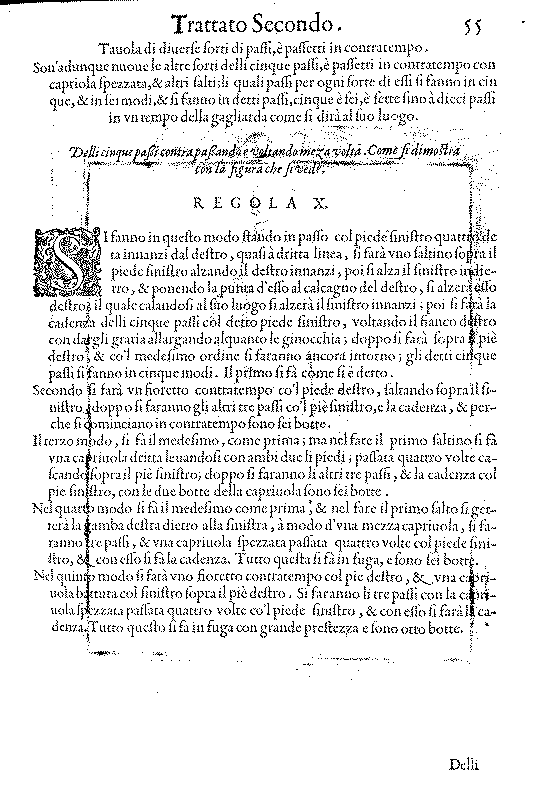 Trattato Secondo. 55
Tauola di diuerse sorti di passi, è passetti in contratempo.
Son'adunque nuoue le altre sorti delli cinque passi, è passetti in contratempo con
capriola spezzata, & altri salti; li quali passi per ogni sorte di essi si fanno in cin
que, & in sei modi, & si fanno in detti passi, cinque è sei, è sette sino à dieci passi
in vn tempo della gagliarda come si dirà al suo luogo.
Delli cinque passi contrapassando e voltando meza volta. Come si dimostra
con la figura che si vede.
REGOLA X.
SI fanno in questo modo stando in passo col piede sinistro quattro de
ta innanzi dal destro, quasi à dritta linea, si farà vno saltino sopra il
piede sinistro alzando il destro innanzi, poi si alza il sinistro indie-
tro, & ponendo la punta d'esso al calcagno del destro, si alzerà esso
destro; il quale calandosi al suo luogo si alzerà il sinistro innanzi; poi si farà la
cadenza delli cinque passi col detto piede sinistro, voltando il fianco destro
con dargli gratia allargando alquanto le ginocchia; doppo si farà sopra il piè
destro; & co'l medesimo ordine si faranno ancora intorno; gli detti cinque
passi si fanno in cinque modi. Il primo si fà come si è detto.
Secondo si farà vn fioretto contratempo co'l piede destro, saltando sopra il si-
nistro, doppo si faranno gli altri tre passi co'l piè sinistro, e la cadenza, & per-
che si cominciano in contratempo sono sei botte.
Il terzo modo, si fà il medesimo, come prima; ma nel fare il primo saltino si fà
vna capriuola dritta leuandosi con ambi due li piedi; passata quattro volte ca-
scando sopra il piè sinistro; doppo si faranno li altri tre passi, & la cadenza col
pie sinistro, con le due botte della capriuola sono sei botte.
Nel quarto modo si fà il medesimo come prima, & nel fare il primo salto si get-
terà la gamba destra dietro alla sinistra, à modo d'vna mezza capriuola, si fa-
ranno tre passi, & vna capriuola spezzata passata quattro volte col piede sini-
stro, & con esso si fà la cadenza. Tutto questa si fà in fuga, e sono sei botte.
Nel quinto modo si farà vno fioretto contratempo col pie destro, & vna capri-
uola battuta col sinistro sopra il piè destro. Si faranno li tre passi con la capri-
uola spezzata passata quattro volte co'l piede sinistro, & con esso si farà la ca-
denza. Tutto questo si fà in fuga con grande prestezza e sono otto botte.
Delli